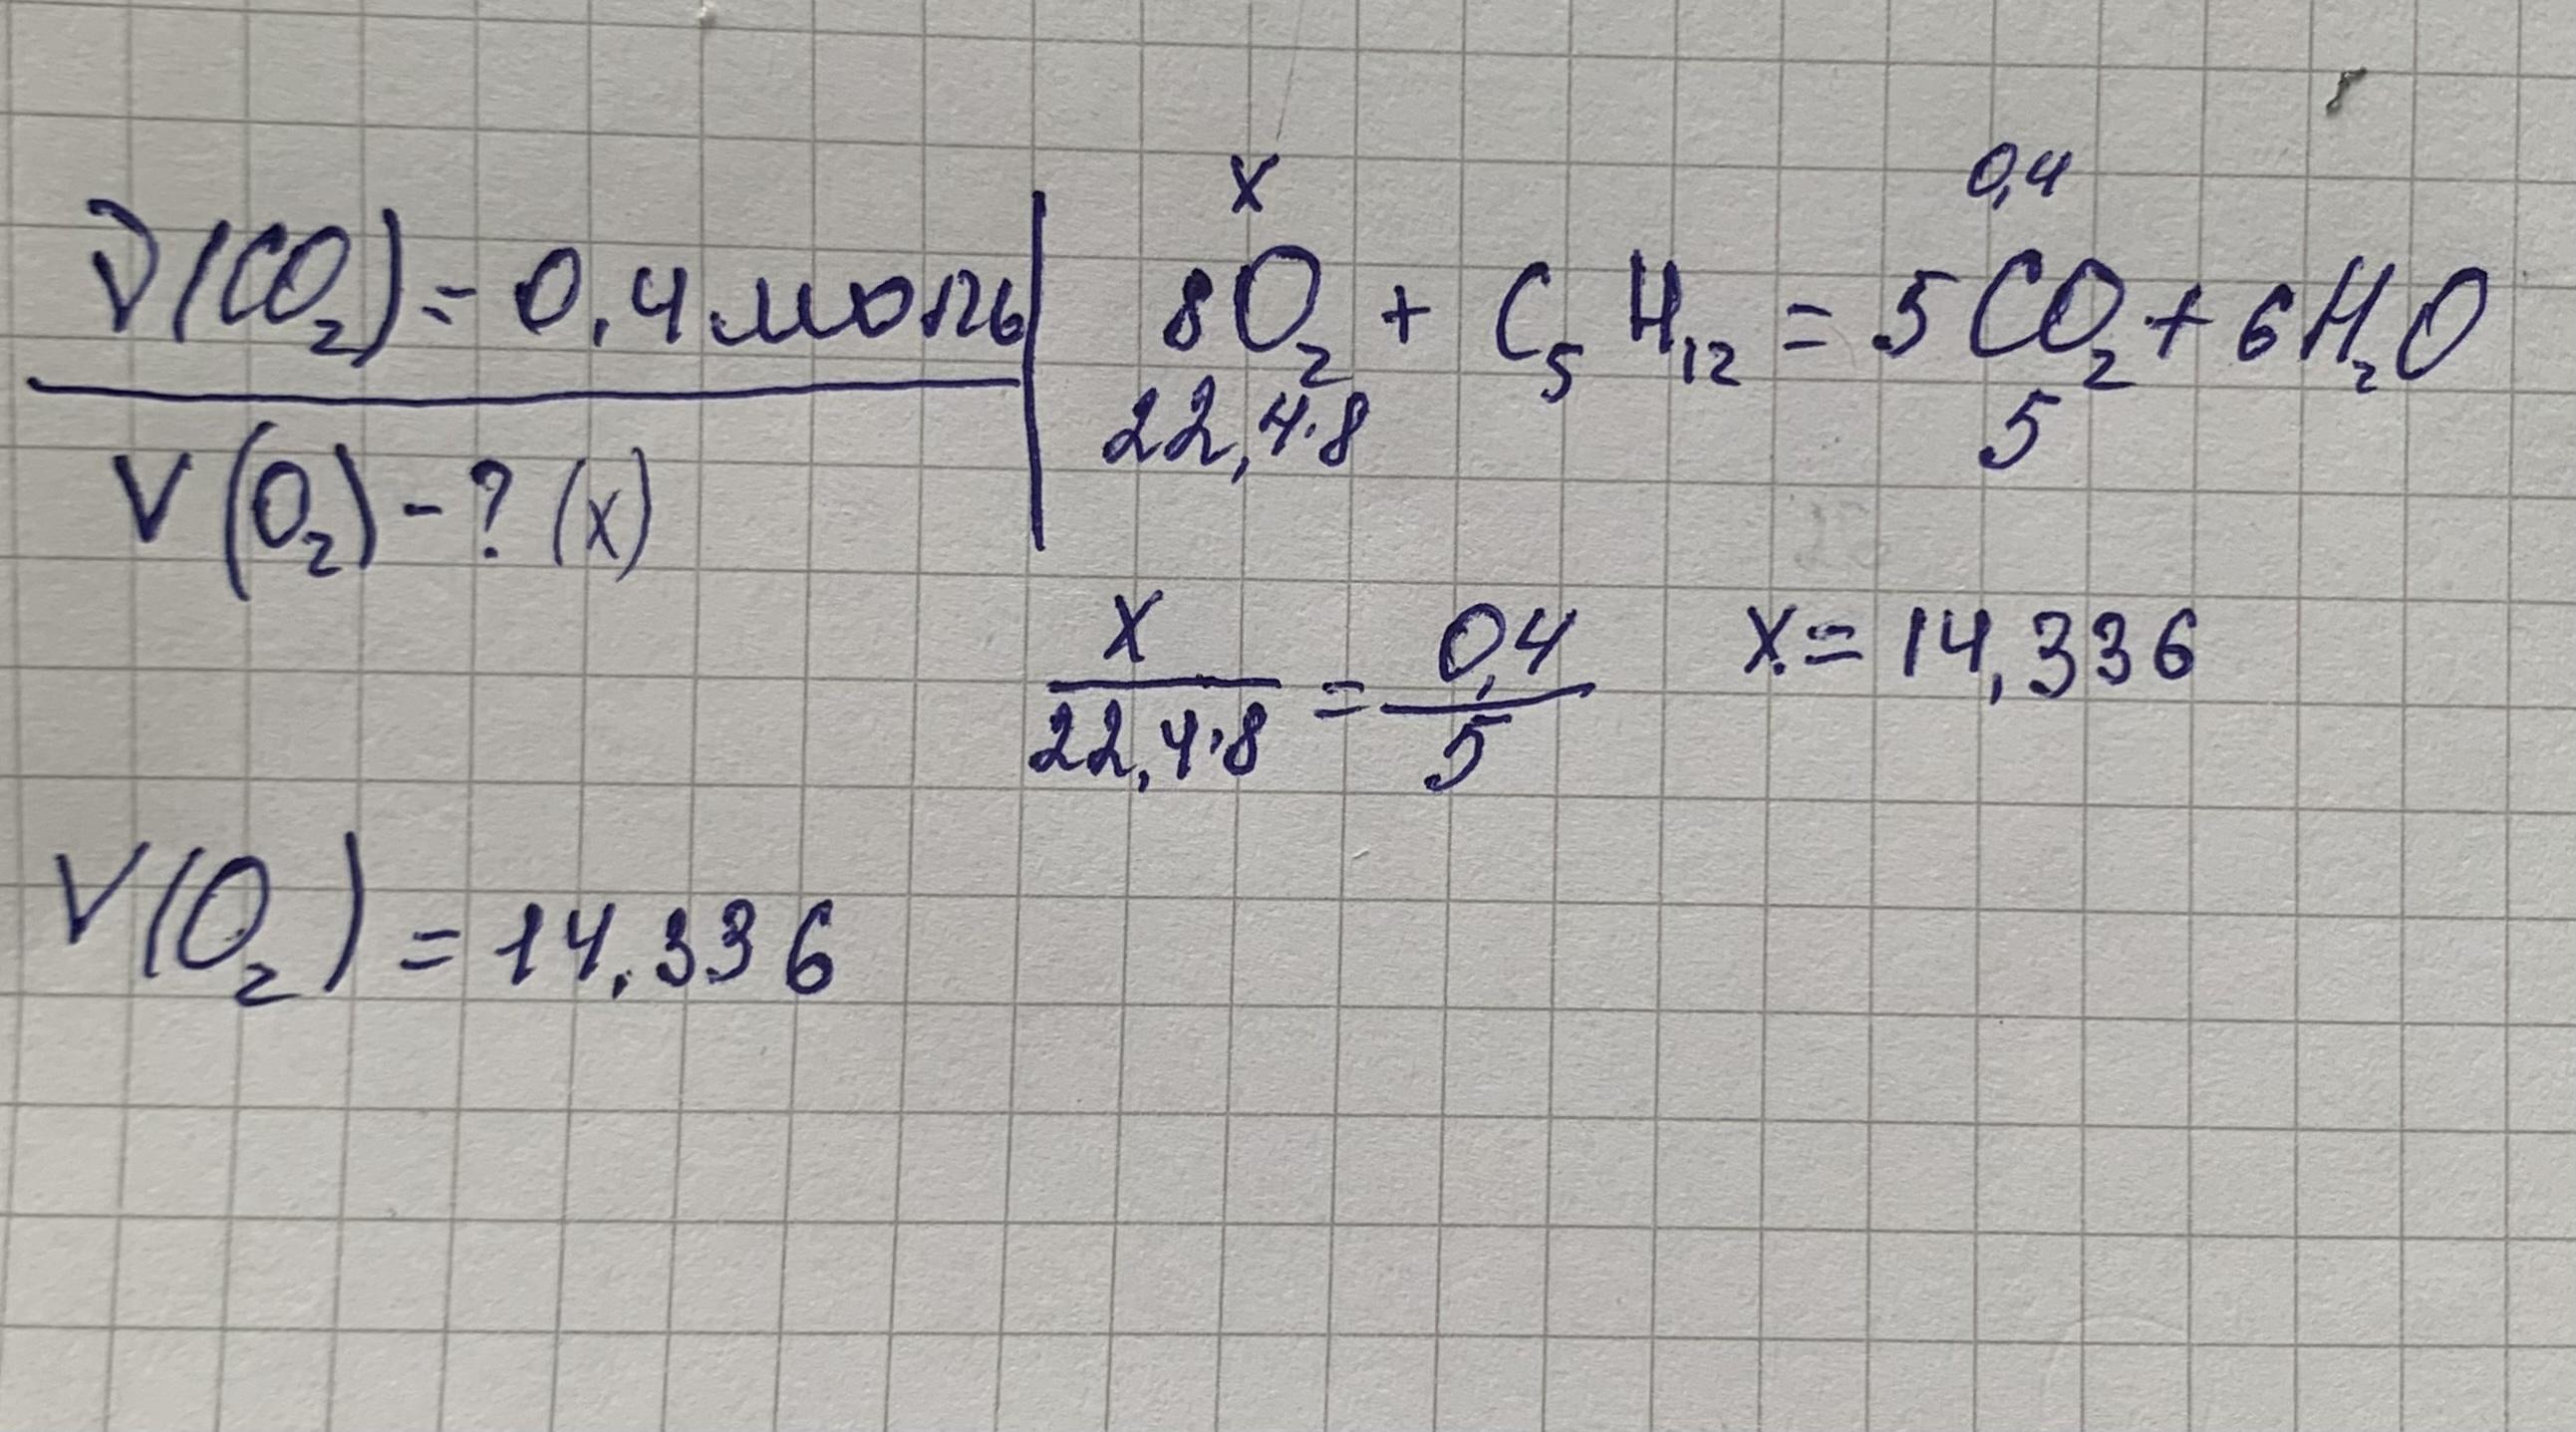 ν(CO₂) = 0,4 моль
V(O₂) - ? (x)
x 0,4
8O₂ + C₅H₁₂ = 5CO₂ + 6H₂O
22,4·8 5
x/22,4·8 = 0,4/5 x = 14,336
V(O₂) = 14,336